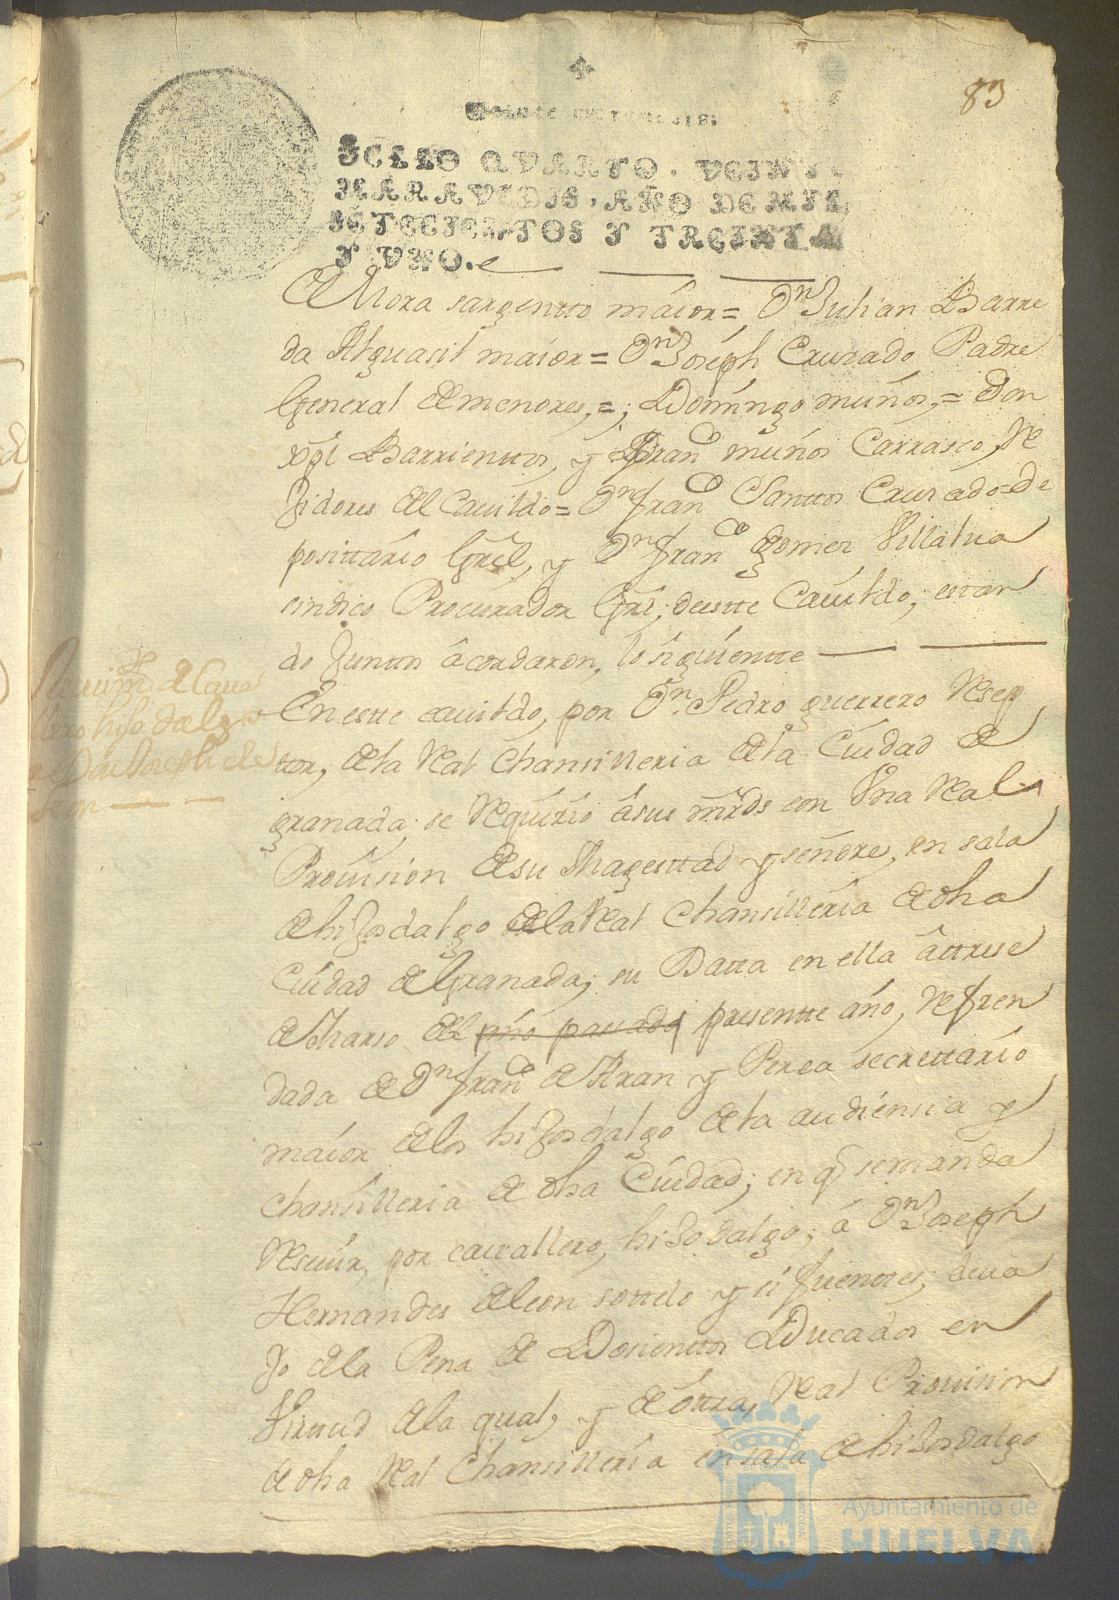 83
SELLO QVARTO. VEINTE
MARAVEDIS, AÑO DE MIL
SETECIENTOS Y TREINTA
Y UNO.
de Mora sargentto maior = Dn Julian Barre
da Alguasil maior = Dn Joseph Crusado Padre
General de menores, =, Domingo muños, = Don
xpl Barrienttos, y Franco muños Carrasco, Re
jidores del Cavildo = Dn Franco Santtos Crusado = De
posittario Grl, y Dn Franco gomez Villalva
sindico Procurador Grl, deestte Cavildo, estan
do Junttos acordaron, lo siguientte
Reciuimto de Cava
llero hijo dalgo
a Don Joseph de
Leon
En estte cavildo, por Dn Pedro guerrero Resep
tor, de la Real Chansilleria de la Ciudad de
granada, se Requirio a sus mrds con Una Real
Provision de su Magesttad y señores, en sala
de hijosdalgo de la Real Chansilleria de dha
Ciudad de Granada; su Datta en ella a ttrese
de Marso del año passado presentte año, Refren
dada de Dn Franco de Aran y Perea secrettario
maior de los hijosdalgo de la audiensia y
chansilleria de dha Ciudad; en q se manda
Resevir, por cavallero, hijodalgo; á Dn Joseph
Hernandes de leon sottelo y sifuenttes; deva
jo de la Pena de Dosienttos Ducados en
Virttud de la qual, y de ottra, Real Provision
de dha Real Chansilleria en sala de hijosdalgo
Ayuntamiento de
HUELVA